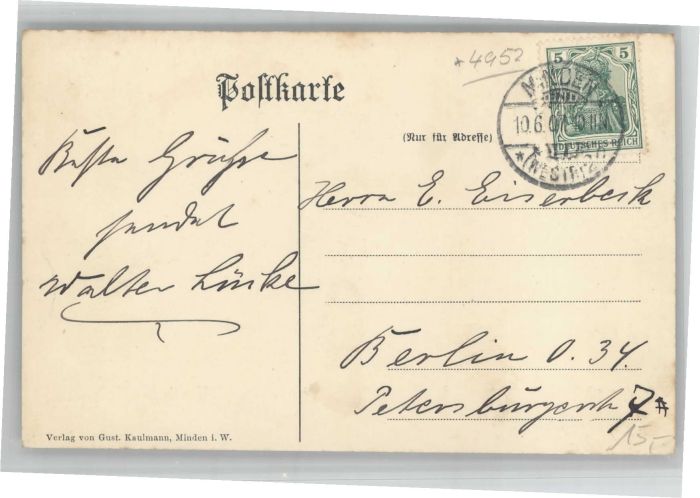 *4952
5 5
DEUTSCHES REICH
MINDEN
10.6.07
* (WESTF.) 2
Postkarte
(Nur für Adresse)
Beste Grüße
sendet
Walter Lücke
Herrn E. Eiserbeck
Berlin O. 34.
Petersburgerstr 7
15,-
Verlag von Gust. Kaulmann, Minden i. W.